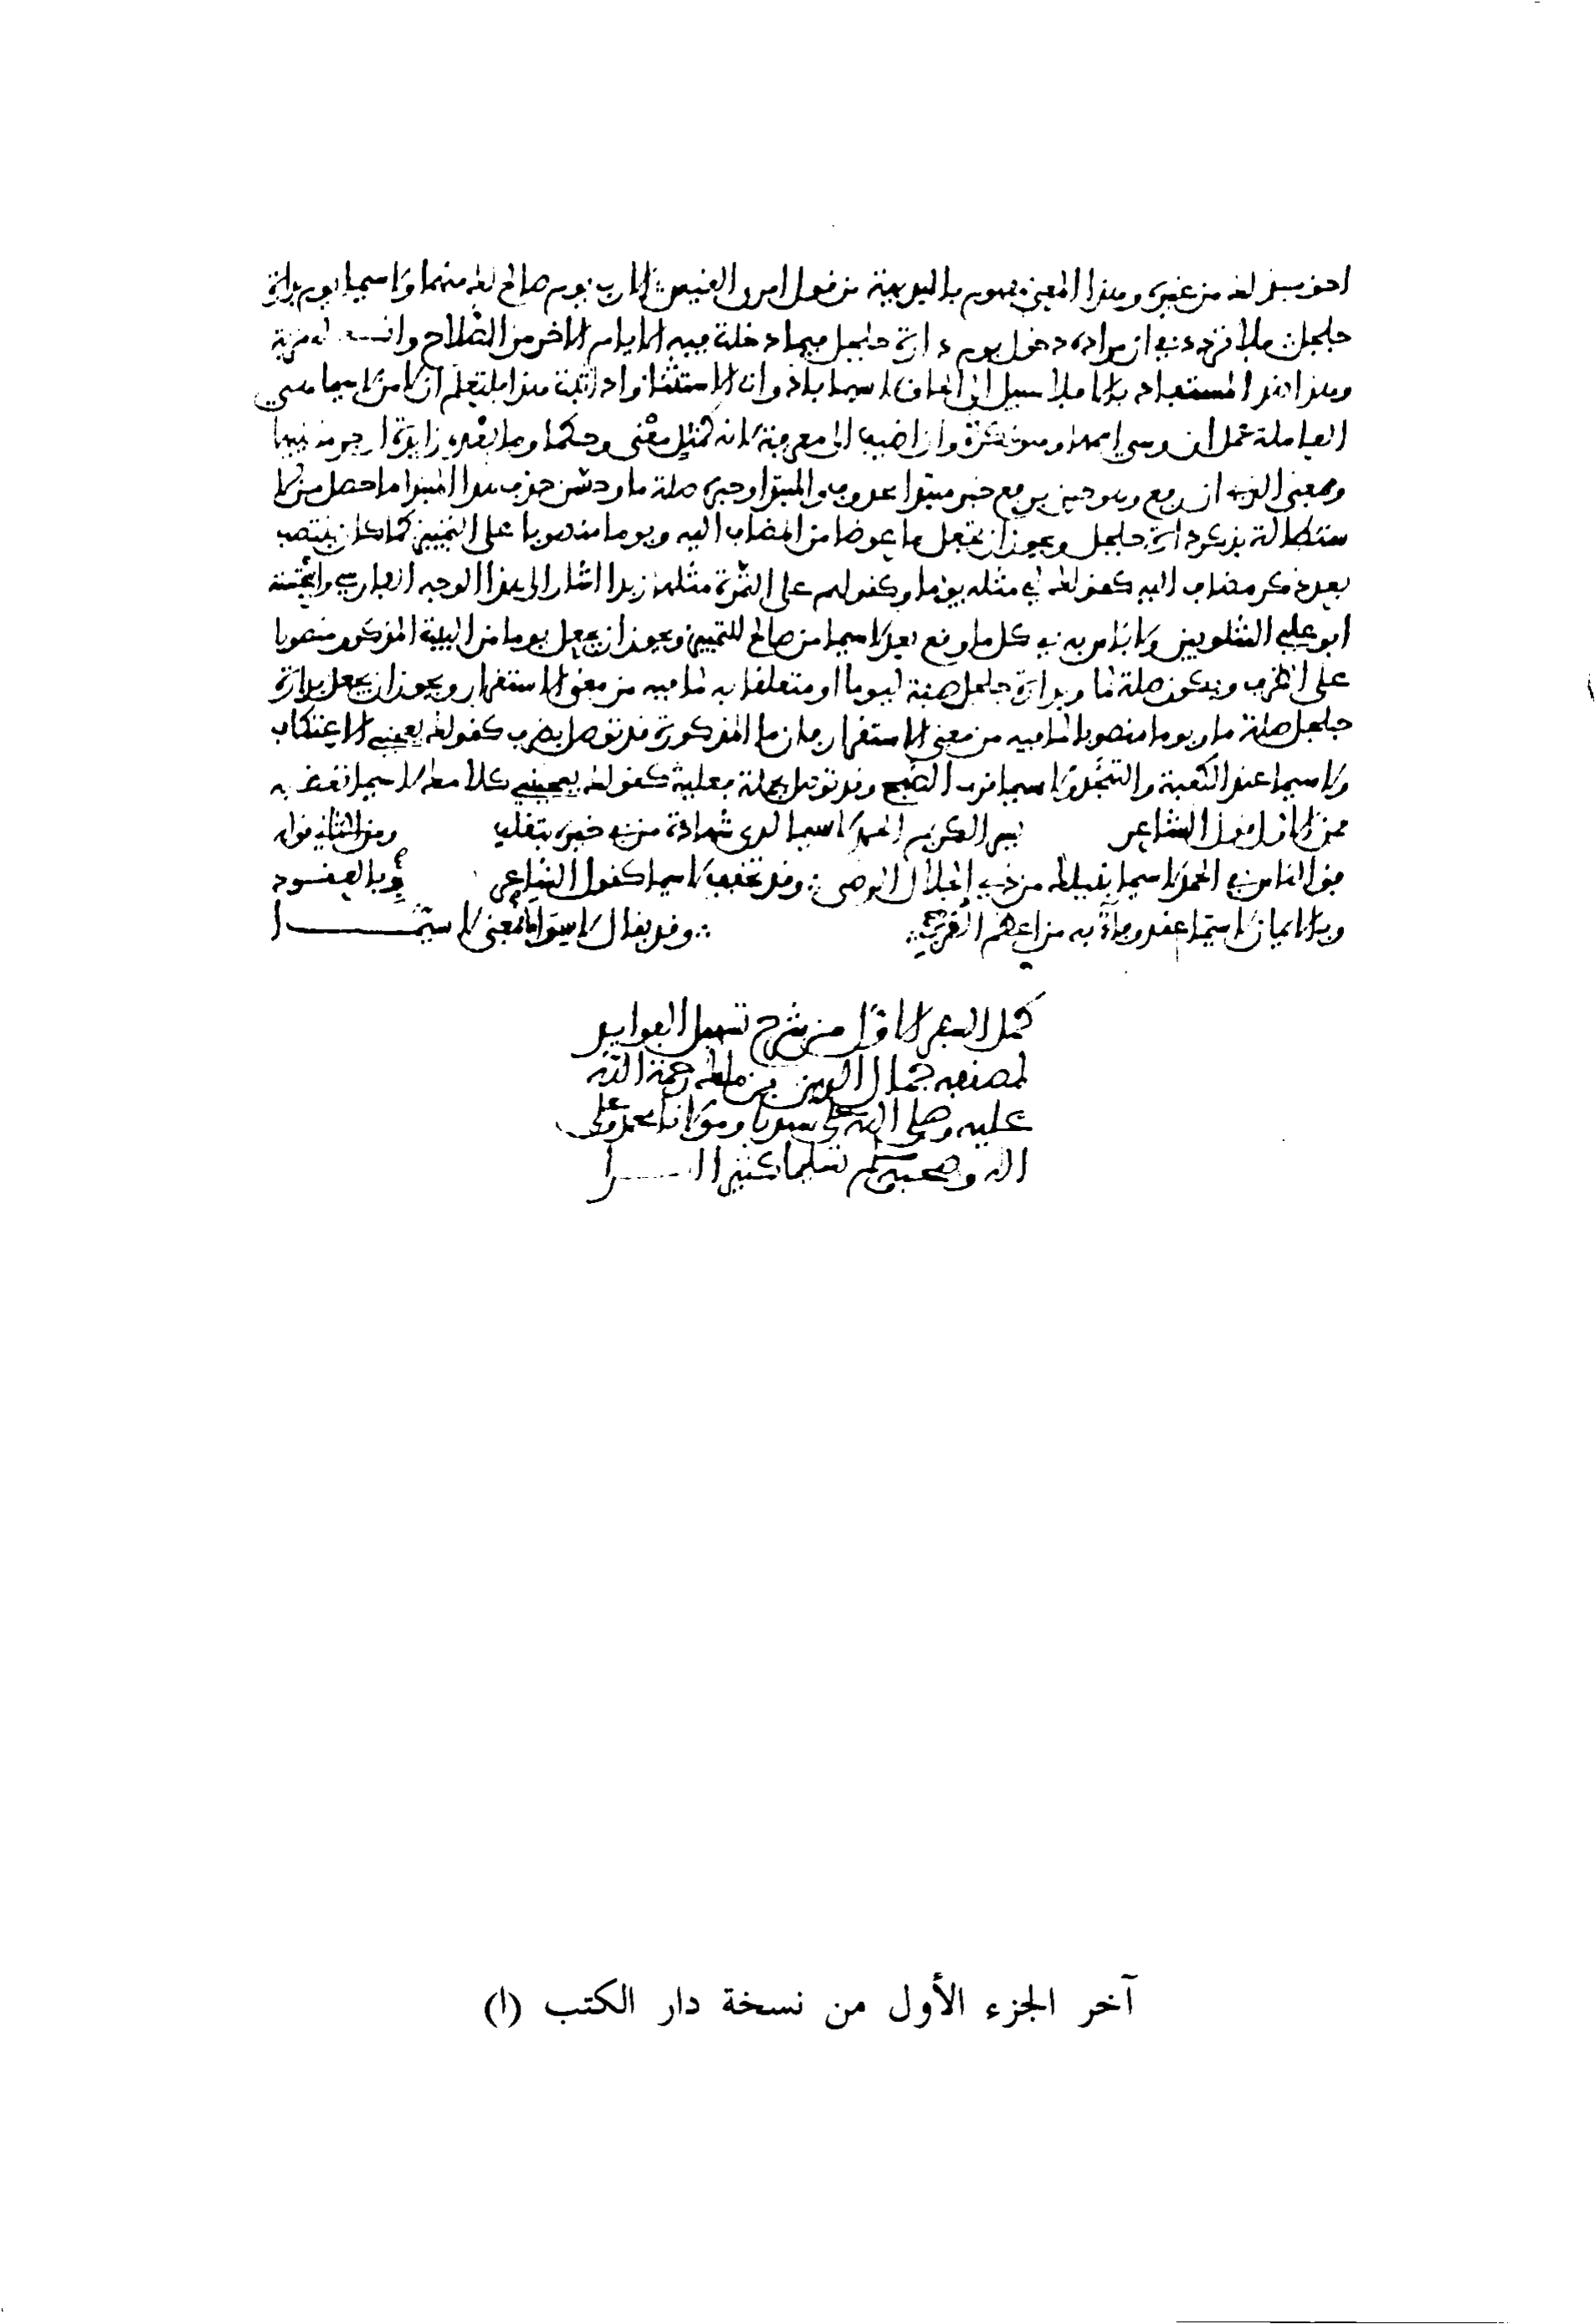 احق بذلك من غيره وهذا المعنى مفهوم بالبديهية من قول امرئ القيس الا رب يوم صالح لك منهما ولا سيما يوم بدارة
جلجل فلا تردد في ان مراده دخول يوم دارة جلجل فيما دخلت فيه الايام الاخر من الصلاح وان له مزية
وهذا ضد المستفاد بالا فلا سبيل الى الحاق لا سيما بادوات الاستثناء واذا ثبت هذا فليعلم ان لا من لا سيما هي
العاملة عمل ان وسي اسمها وهو نكرة وان اضيف الى معرفة لانه كمثل معنى وحكما وما بعده زايدة ان جر ما يليها
وبمعنى الذي ان رفع وهو حينئذ يرفع خبر مبتدا محذوف والمبتدا وخبره صلة ما وحسن حذف هذا المبتدا ما حصل من الا
ستطالة بذكر دارة جلجل ويجوز ان تجعل ما عوضا من المضاف اليه ويوما منصوبا على التمييز كما كان ينتصب
بعد ذكر مضاف اليه كقولك لي مثله يوما وكقولهم على الثمرة مثلها زبدا اشار الى هذا الوجه الفارسي واستحسنه
ابو علي الشلوبين ولا باس به في كل ما وقع بعد لا سيما من صالح للتمييز ويجوز ان يجعل يوما من البيت المذكور منصوبا
على الظرف ويكون صلة لما وبدارة جلجل صفة ليوما او متعلقا به لما فيه من معنى الاستقرار ويجوز ان يجعل بدارة
جلجل صلة ما ويوما منصوبا لما فيه من معنى الاستقرار فان ما المذكورة قد توصل بظرف كقولك يعجبني الاعتكاف
ولا سيما عند الكعبة والتهجد ولا سيما قرب الصبح وقد توصل بجملة فعلية كقولك يعجبني كلامك لا سيما تعظ به
فمن الاول قول الشاعر يسر الكريم الحمد لا سيما لدى شهادة من في خيره يتقلب ومن الثاني قوله
فق الناس في الحمد لا سيما ينيلك من ذي الجلال الرضى وقد تخفف لا سيما كقول الشاعر فه بالعقود
وبالايمان لا سيما عقد وفاء به من اعظم القرب وقد يقال لا سواما بمعنى لا سيما
كمل السفر الاول من شرح تسهيل الفوايد
لمصنفه جمال الدين بن ملك رحمة الله
عليه وصلى الله على سيدنا ومولانا محمد وعلى
اله وصحبه وسلم تسليما كثيرا
آخر الجزء الأول من نسخة دار الكتب (ا)